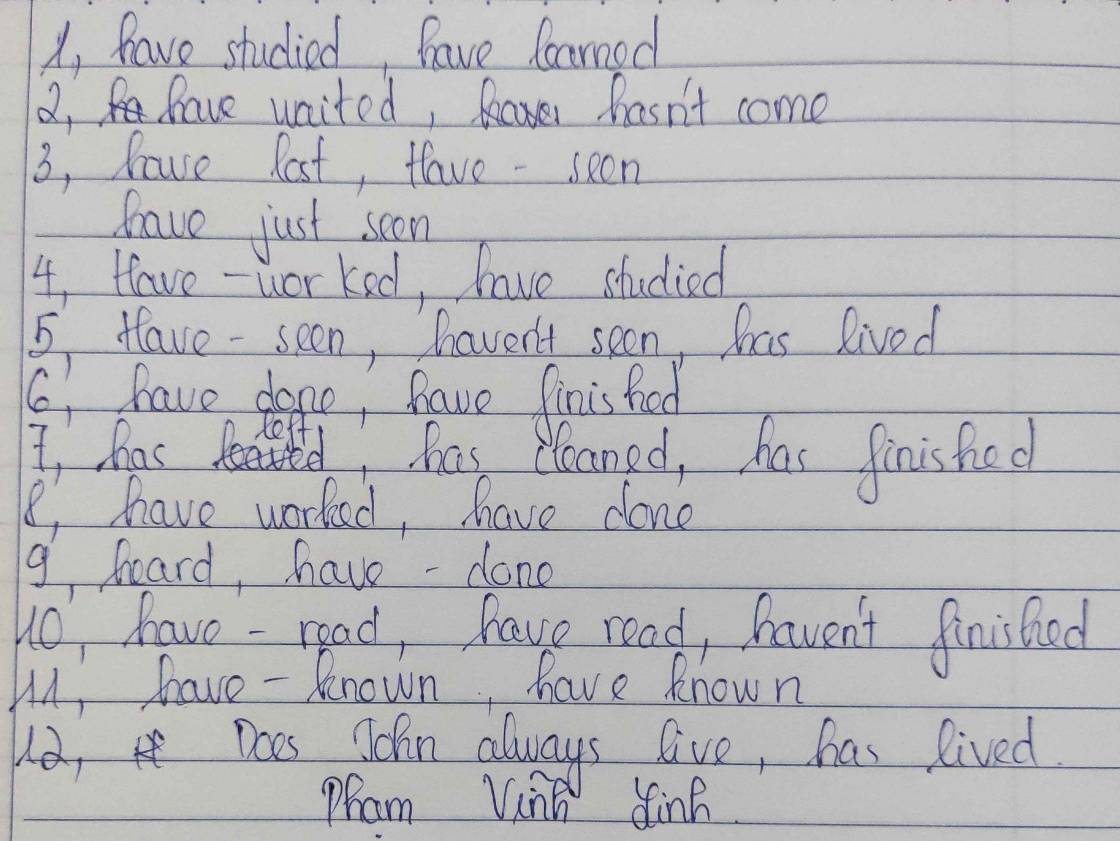 1, have studied, have learned
2, have waited, hasn't come
3, have lost, Have - seen
have just seen
4, Have - worked, have studied
5, Have - seen, haven't seen, has lived
6, have done, have finished
7, has left, has cleaned, has finished
8, have worked, have done
9, heard, have - done
10, have - read, have read, haven't finished
11, have - known, have known
12, Does John always live, has lived.
Phạm Vĩnh Linh.